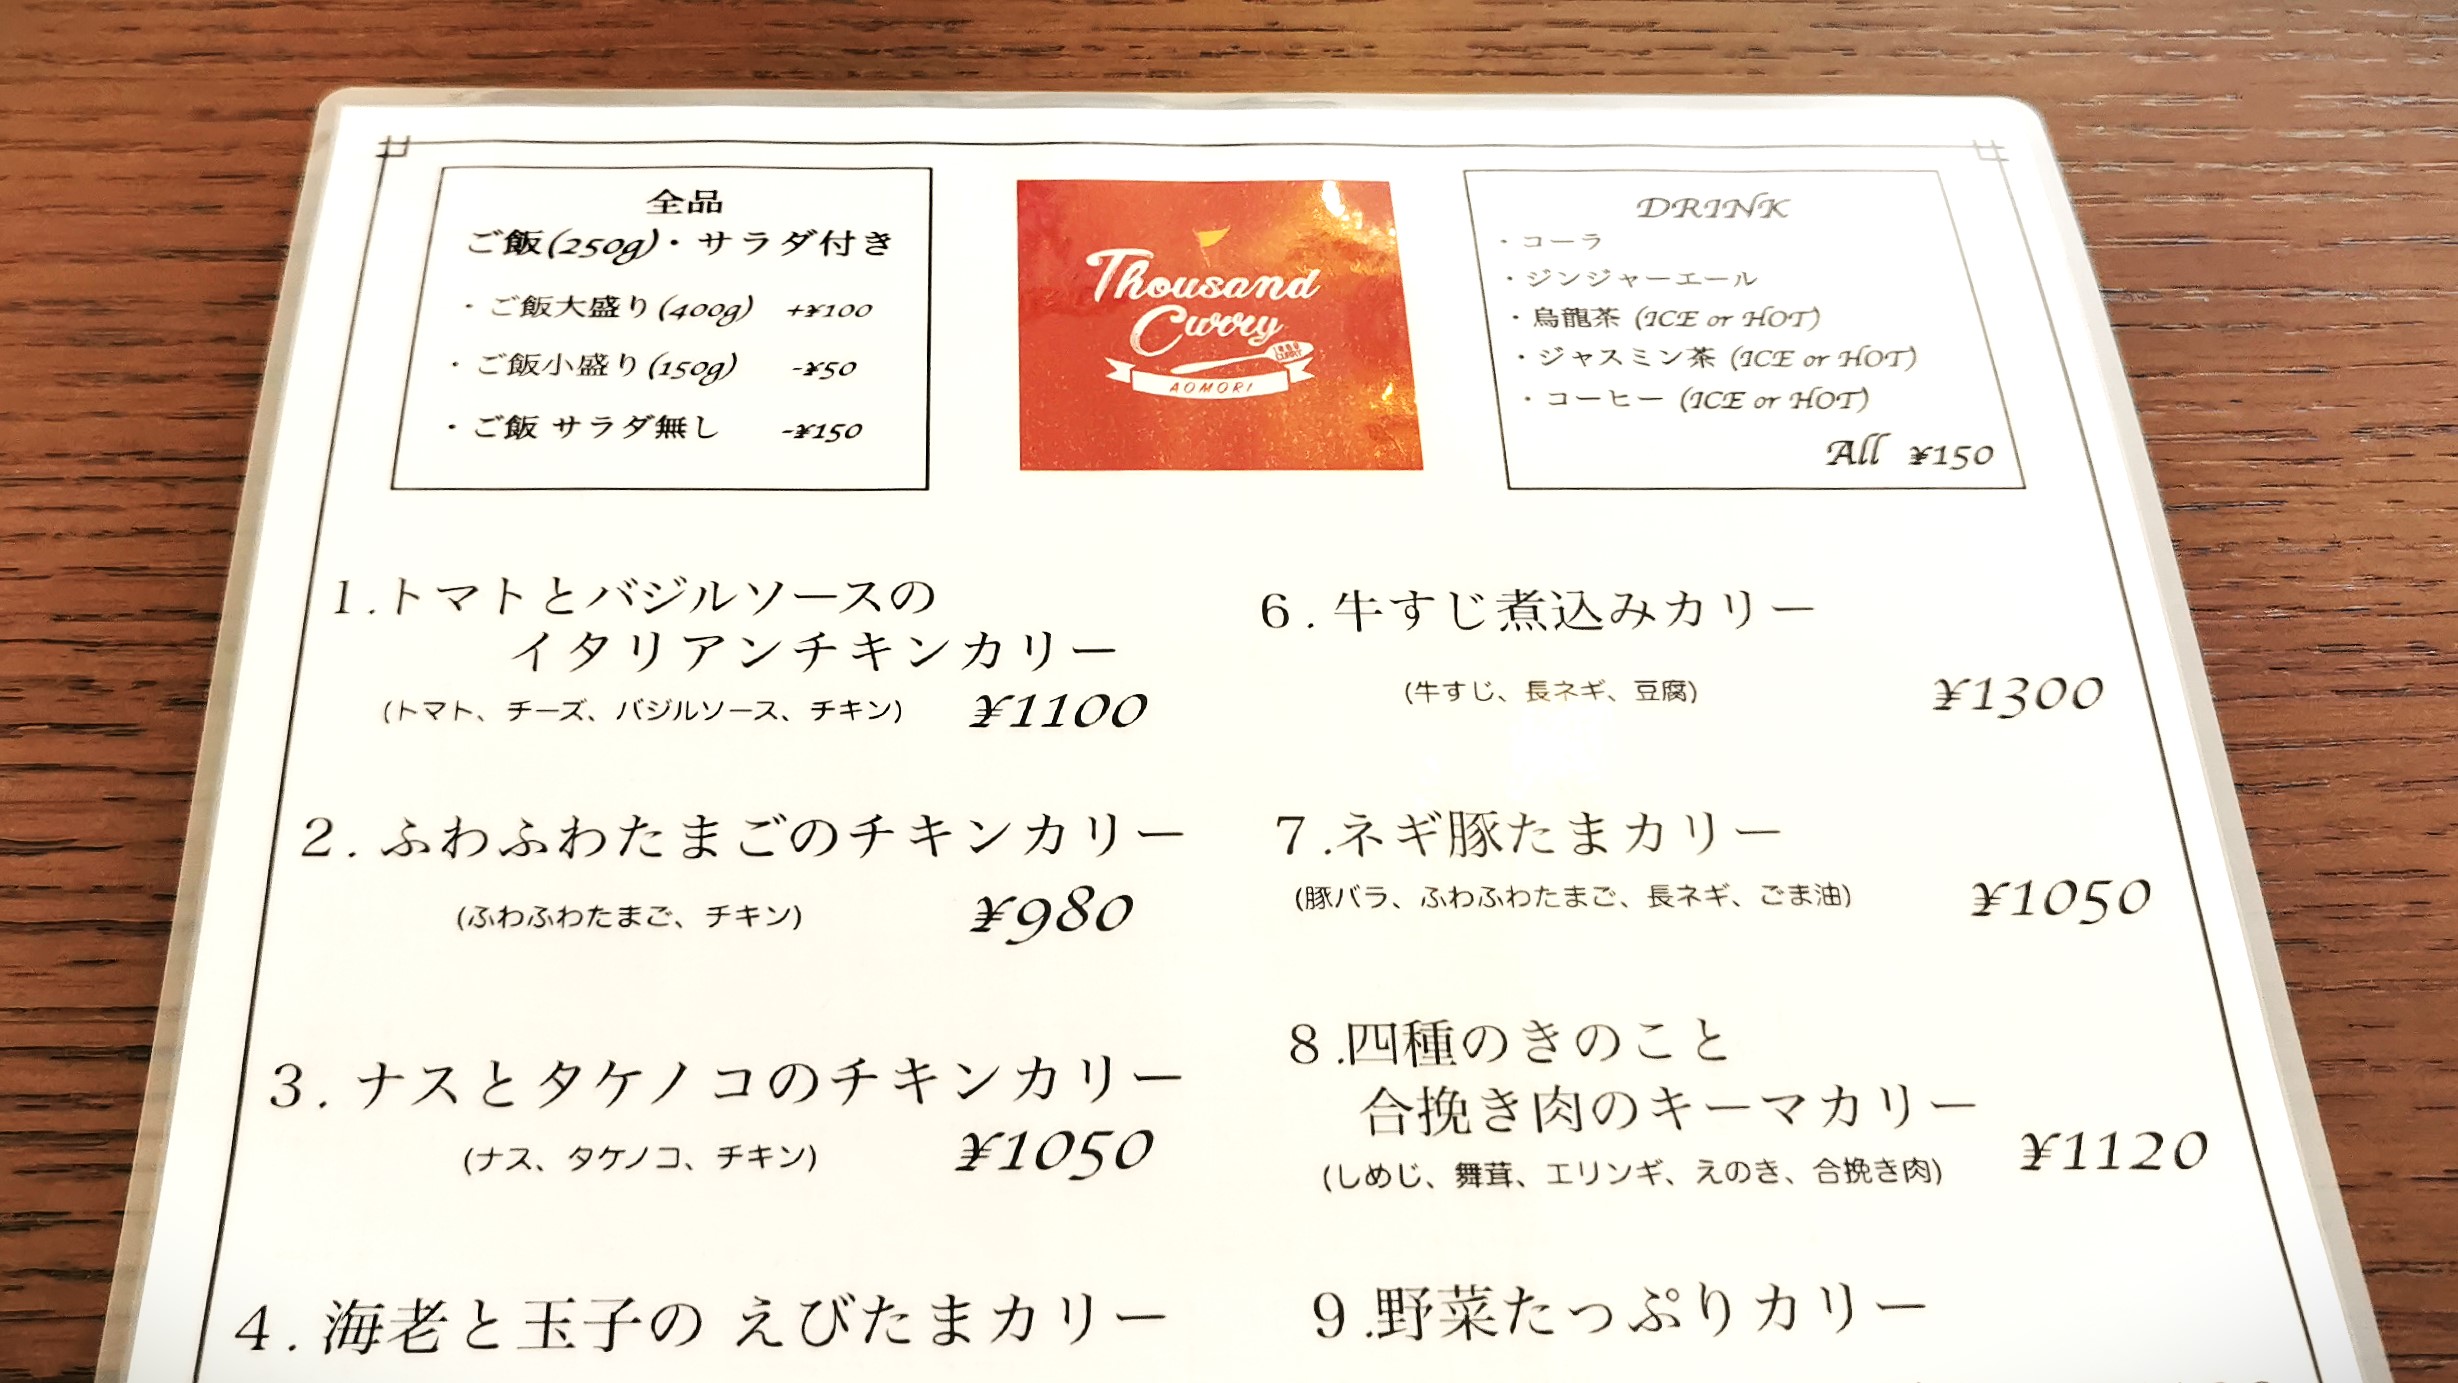 全品
ご飯(250g)・サラダ付き
・ご飯大盛り(400g) +¥100
・ご飯小盛り(150g) -¥50
・ご飯 サラダ無し -¥150
Thousand
Curry
AOMORI
DRINK
・コーラ
・ジンジャーエール
・烏龍茶 (ICE or HOT)
・ジャスミン茶 (ICE or HOT)
・コーヒー (ICE or HOT)
All ¥150
1.トマトとバジルソースの
イタリアンチキンカリー
(トマト、チーズ、バジルソース、チキン) ¥1100
2.ふわふわたまごのチキンカリー
(ふわふわたまご、チキン) ¥980
3.ナスとタケノコのチキンカリー
(ナス、タケノコ、チキン) ¥1050
4.海老と玉子の えびたまカリー
6.牛すじ煮込みカリー
(牛すじ、長ネギ、豆腐) ¥1300
7.ネギ豚たまカリー
(豚バラ、ふわふわたまご、長ネギ、ごま油) ¥1050
8.四種のきのこと
合挽き肉のキーマカリー
(しめじ、舞茸、エリンギ、えのき、合挽き肉) ¥1120
9.野菜たっぷりカリー